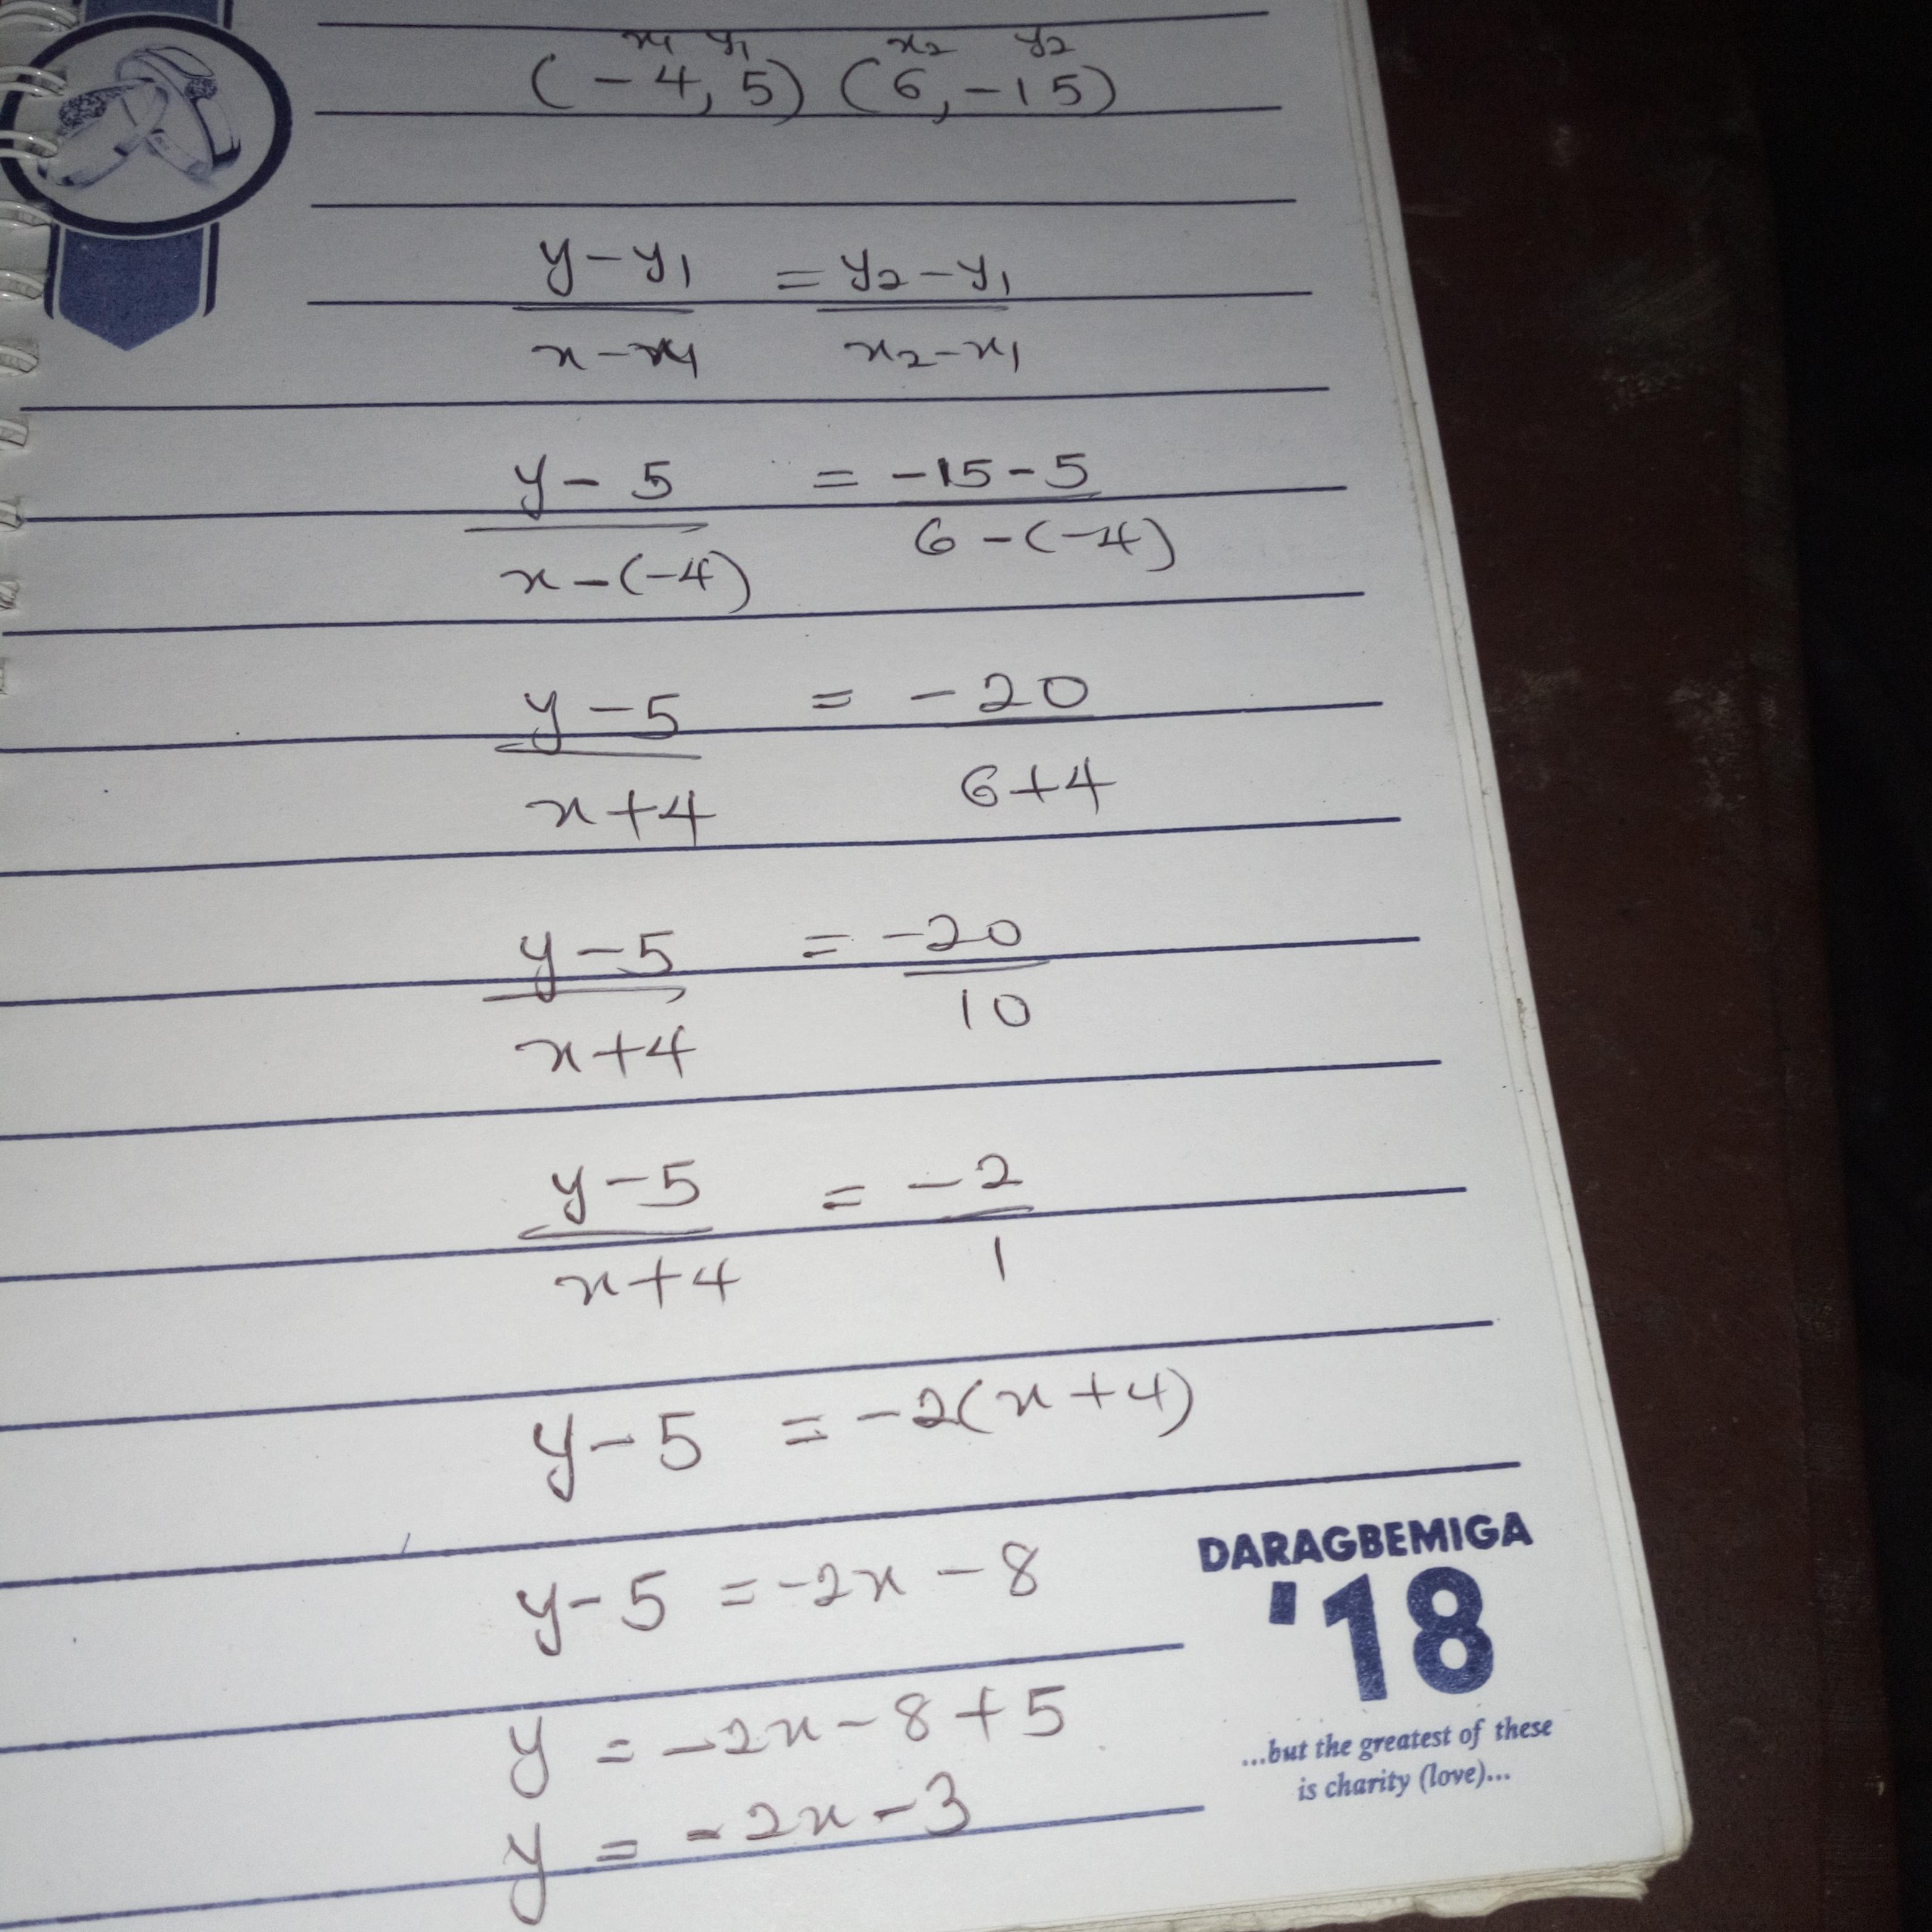 x₁ y₁ x₂ y₂
(-4, 5) (6, -15)
y-y₁ = y₂-y₁
x-x₁ x₂-x₁
y-5 = -15-5
x-(-4) 6-(-4)
y-5 = -20
x+4 6+4
y-5 = -20
x+4 10
y-5 = -2
x+4 1
y-5 = -2(x+4)
y-5 = -2x-8
y = -2x-8+5
y = -2x-3
DARAGBEMIGA
'18
...but the greatest of these
is charity (love)...